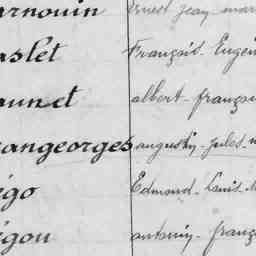 arnouin Ernest Jean mar
aslet François Eugèn
aunet albert françoi
angeorges augustin jules
égo Edmond Louis
égou antonin franç